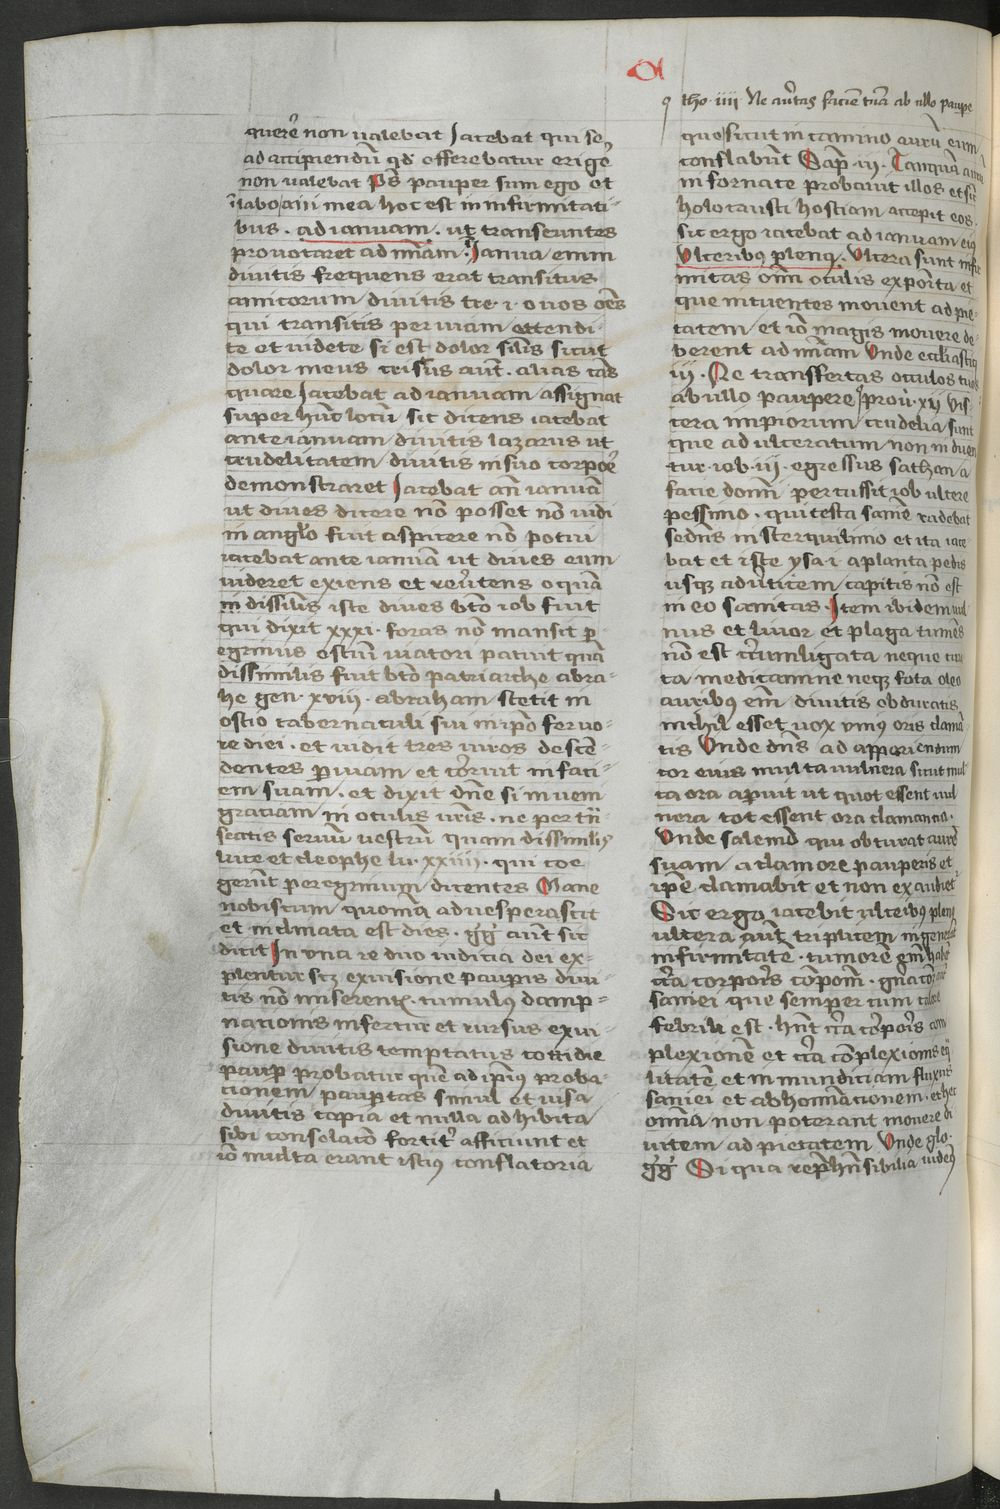 a
tho · iiii Ne au͛tas facie͂ tua͂ ab illo paup͛e
quere͛ non ualebat Jacebat qui se
ad accipiendu͂ qd͛ offerebatur erige͛
non ualebat Ps͂ pauper sum ego et
i͂ labo͛ mea hoc est in infirmitati⸗
bus · ad ianuam · ut transeuntes
prouocaret ad mi͂am · Janua enim
diuitis frequens erat transitus
amicorum diuitis tre · i · o uos oe͂s
qui transitis per uiam attendi⸗
te et uidete si est dolor sil͂is sicut
dolor meus crisus au͂t · alias cas
quare Jacebat ad ianuam assignat
super hu͂c locu͂ sic dicens iacebat
ante ianuam diuitis lazarus ut
crudelitatem diuitis in suo corpoe͛
demonstraret Jacebat an͂ ianua͂
ut diues dicere no͂ posset no͂ uidi
in angl͛o fuit aspicere no͂ potui
iacebat ante ianua͂ ut diues eum
uideret exiens et reu͛tens o qua͂
in dissil͂is iste diues bt͂o iob fuit
qui dixit xxxi · foras no͂ mansit p͛
egrinus ostiu͂ uiatori patuit qua͂
dissimilis fuit bt͂o patriarche abra⸗
he gen · xviii · abraham stetit in
ostio tabernaculi sui in ip͂o feruo⸗
re diei · et uidit tres uiros desce͂⸗
dentes p͛ uiam et co͛ruit in faci⸗
em suam · et dixit dn͂e si inueni
gratiam in oculis ur͂is · ne per tn͂⸗
seatis seruu͂ uestru͂ quam dissimilis
luce et cleophe lu · xxiiii · qui coe
geru͂t peregrinum dicentes Mane
nobiscum quonia͂ aduesperascit
et inclinata est dies · gg͛ au͂t sic
dicit In una re duo iudicia dei ex⸗
plentur scz ex uisione paup͛is diui⸗
tis no͂ miserent͛ · cumulus damp⸗
nationis infertur et rursus ex ui⸗
sione diuitis temptatus cottidie
paup͛ probatur que͂ ad ip͂ius proba⸗
tionem paup͛tas simul et uisa
diuitis copia et nulla adhibita
sibi consolaco͂ fortit͛ afficiunt et
io͂ multa erant istius conflatoria
quo sicut in camino auru͂ eum
conflabu͂t Sap͛ iii · Tanqua͂ auru͂
in fornace probauit illos et si͛c
holocausti hostiam accepit eos ·
sic ergo iacebat ad ianuam eiꝰ
Vlceribꝰ plenꝰ · Vlcera sunt infir
mitas om͂i oculis expoi͂ta et
que intuentes mouent ad pie⸗
tatem et io͂ magis mouere de⸗
berent ad mi͂am Vnde eccl͛iastici
iii · Ne transfertas oculos tuos
ab illo paupere prou͛ · xii Vis⸗
cera impiorum crudelia sunt
que ad ulceratum non induen
tur · iob · iii · egressus sathan a
facie domi͂ percussit iob ulcere
pessimo · qui testa sanie͂ radebat
sede͂ns in sterquilinio et ita iace
bat et iste ysa · i · a planta pedis
usqꝫ ad u͛ticem capitis no͂ est
in eo sanitas · Item ibidem uul
nus et liuor et plaga tume͂s
no͂ est cir͂cumligata neque cura
ta medicamine neqꝫ fota oleo
auribꝰ em͂ diuitis obduratis
nichil esset uox unius oris clama͂
tis Vnde dn͂s ad apperiendum
cor eius multa uulnera sicut mul
ta ora ap͛uit ut quot essent uul
nera tot essent ora clamancia ·
Vnde salemo͂ qui obturat aure͂
suam a clamore pauperis et
ip͂e clamabit et non exaudiet͛
Sic ergo iacebit ulceribꝰ plenꝰ
ulcera au͂t triplicem ingenera͂t
infirmitate͂ · tumore͂ em͂ habe͂t
cir͂ca corporis co͂posi͂com · gn͂aco͂em
saniei que semper cum calore
febrili est · hn͂t cir͂ca corporis com
plexione͂ et cir͂ca co͂plexionis equ
litate͂ et inmundiciam fluxus
saniei et abhominacionem · et hec
omi͂a non poterant mouere di
uitem ad pietatem Vnde glo ·
gg͛ Si qua rep͛hensibilia uideꝰ